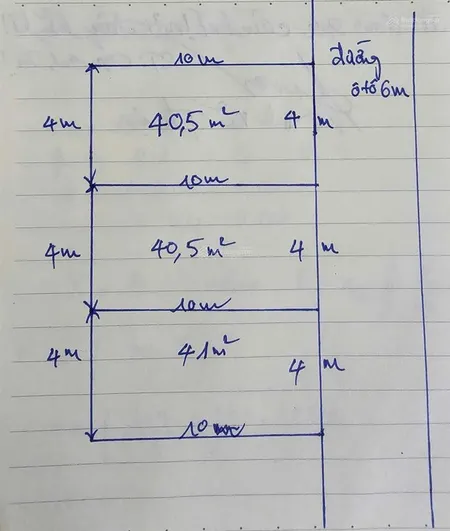 10m
đường
ô tô 6m
4m
40,5 m²
4 m
10m
4m
40,5 m²
4 m
10m
4m
41m²
4 m
10m